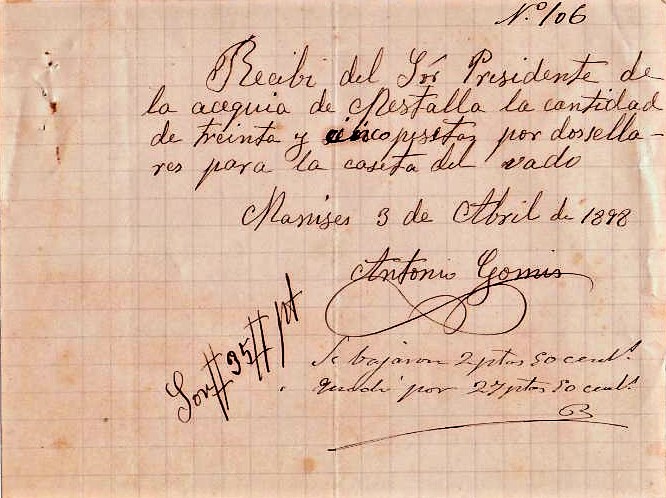 N.º 106
Recibi del Sór Presidente de
la acequia de Mestalla la cantidad
de treinta y cinco pesetaz por dossella-
res para la caseta del vado
Manises 3 de Abril de 1898
Antonio Gomis
Son #35# pt
Se bajaron 2 ptas 50 centˢ.
quedó por 27 ptas 50 centˢ.